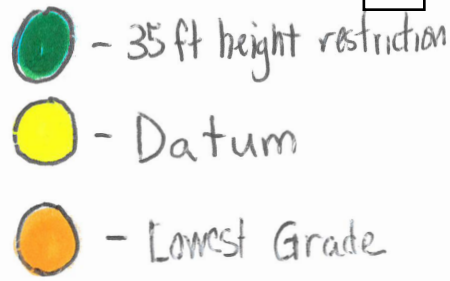 - 35 ft height restriction
- Datum
- Lowest Grade